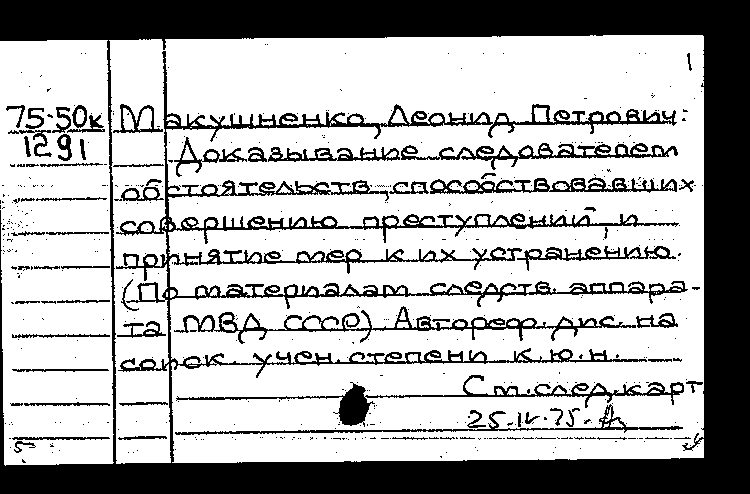 1
75-50к Макушненко, Леонид Петрович:
1291 Доказывание следователем
обстоятельств, способствовавших
совершению преступлений, и
принятие мер к их устранению.
(По материалам следств. аппара-
та МВД СССР) Автореф. дис. на
соиск. учен. степени к.ю.н.
См. след. карт.
25.IV.75.